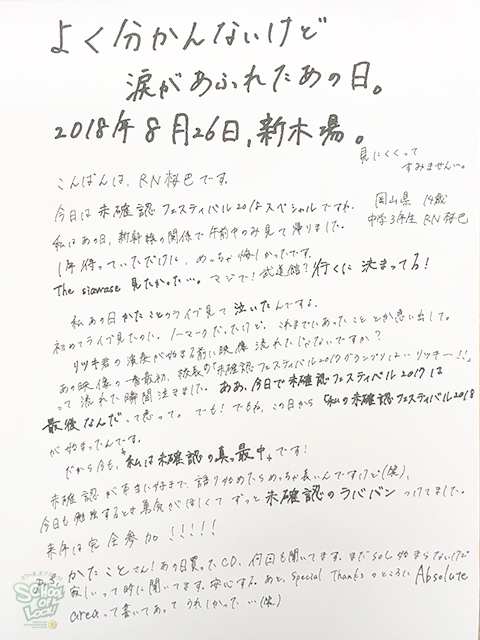 よく分かんないけど
涙があふれたあの日。
2018年8月26日,新木場。
見にくくって
すみません…。
こんばんは、RN桜巴です。
岡山県 14歳
中学3年生 RN桜巴
今日は未確認フェスティバル2018スペシャルですね。
私はあの日、新幹線の関係で午前中のみ見て帰りました。
1年待っていただけに、めっちゃ悔しかったです。
The siawase 見たかった…。マジで!武道館?行くに決まってる!
私あの日かたことのライブ見て泣いたんですよ。
初めてライブ見たのに。ノーマークだったけど、これまでにあったこととか思い出して。
リツキ君の演奏が始まる前に映像流れたじゃないですか?
あの映像の一番最初、校長の「未確認フェスティバル2017グランプリは…リツキー!!」
って流れた瞬間泣きました。ああ、今日で未確認フェスティバル2017は
最後なんだって思って。でも!でもね、この日から「私の未確認フェスティバル2018
が始まったんです。
だから今も、"私は未確認の真っ最中"です!
未確認が本当に好きで、語り始めたらめっちゃ長いんですけど(笑)、
今日も勉強するとき勇気がほしくてずっと未確認のラババンつけてました。
来年は完全参加!!!!!
P.S. かたことさん!あの日買ったCD、何回も聞いてます。まだSOL始まらないけど
寂しいって時に聞いてます。安心する。あと、Special Thanksのところに Absolute
areaって書いてあってうれしかった…(笑)
SCHOOL OF LOCK!